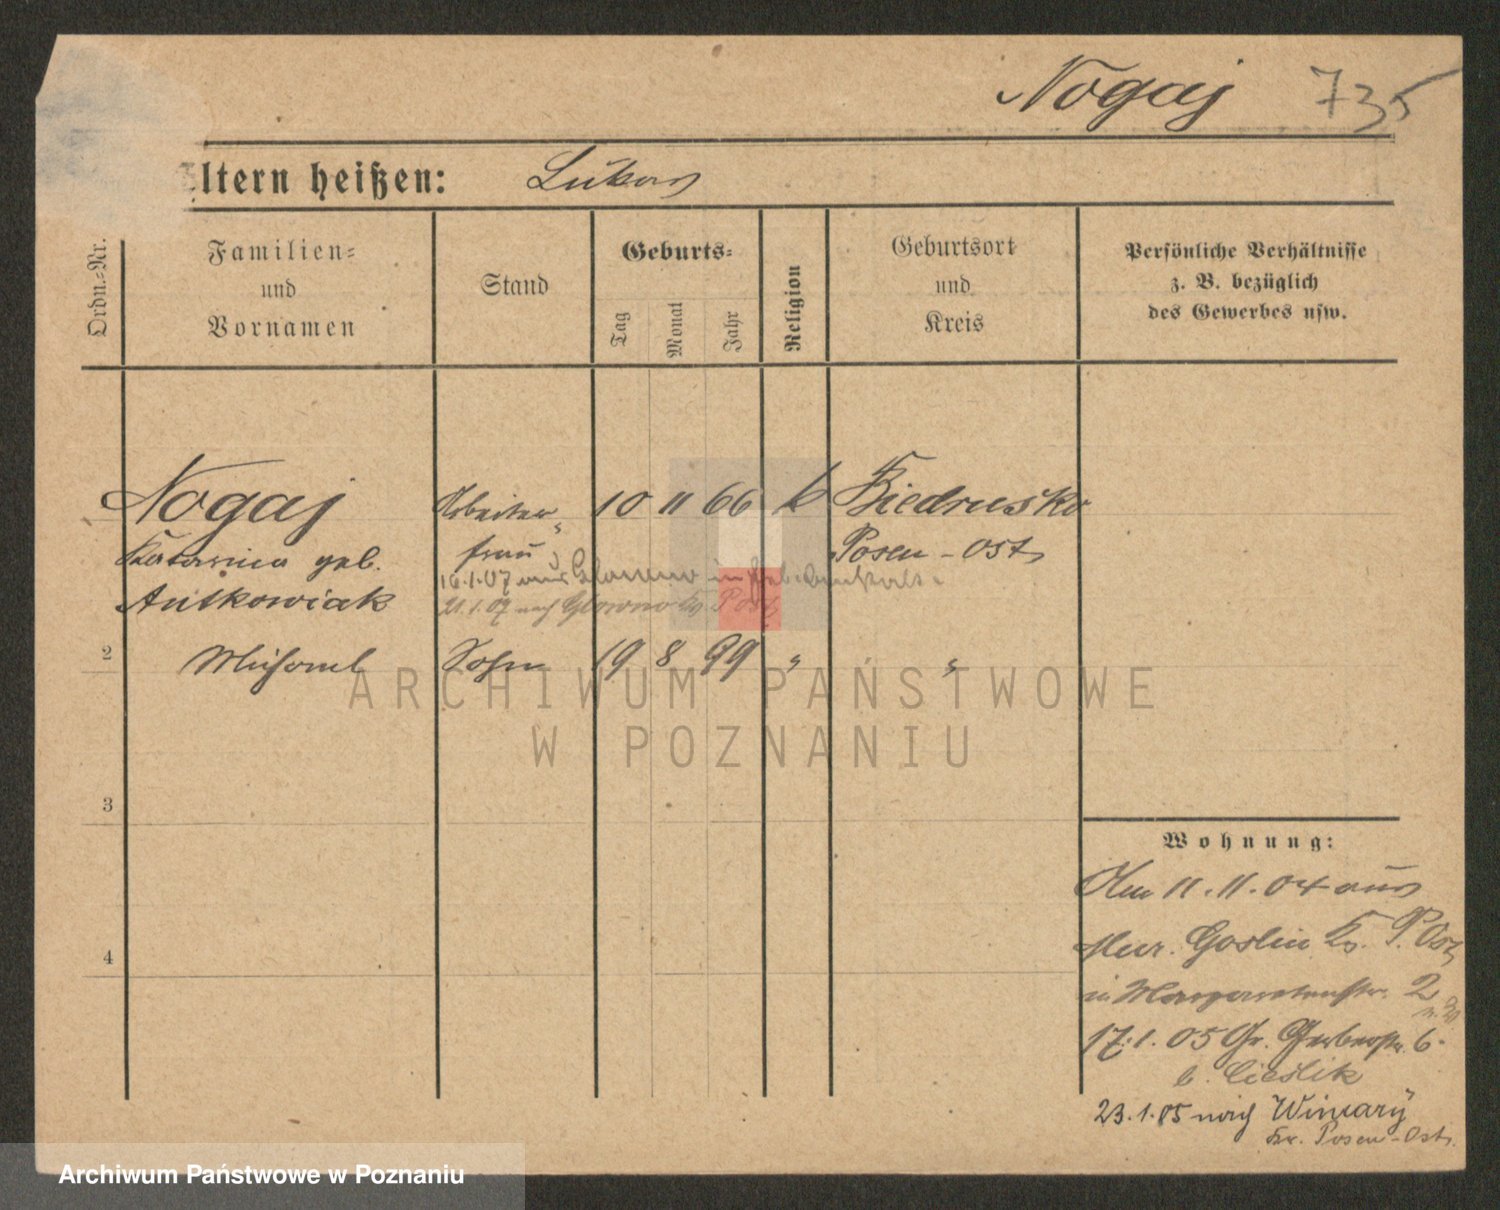 Nogaj 735
ltern heißen: Lukas
Ordn.-Nr.
Familien-
und
Vornamen
Stand
Geburts-
Tag
Monat
Jahr
Religion
Geburtsort
und
Kreis
Persönliche Verhältnisse
z. B. bezüglich
des Gewerbes usw.
Nogaj Arbeiter- 10 11 66 k Biedrusko
Katarina geb. frau Posen-Ost
16.1.07 aus Glowno in
Antkowiak 21.1.07 nach Glowno Kr. P. Ost
2 Michael Sohn 19 8 99 " "
3
4
Wohnung:
Am 11.11.04 aus
Mur. Goslin Kr. P. Ost
in Margaretenstr. 2
17.1.05 Gr. Gerberstr. 6.
b. Cieslik
23.1.05 nach Winiary
Kr. Posen-Ost.
ARCHIWUM PAŃSTWOWE
W POZNANIU
Archiwum Państwowe w Poznaniu